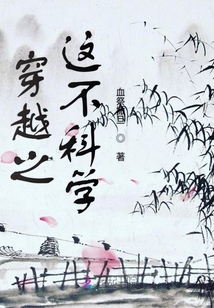 穿越之
这不科学
血祭
◎著